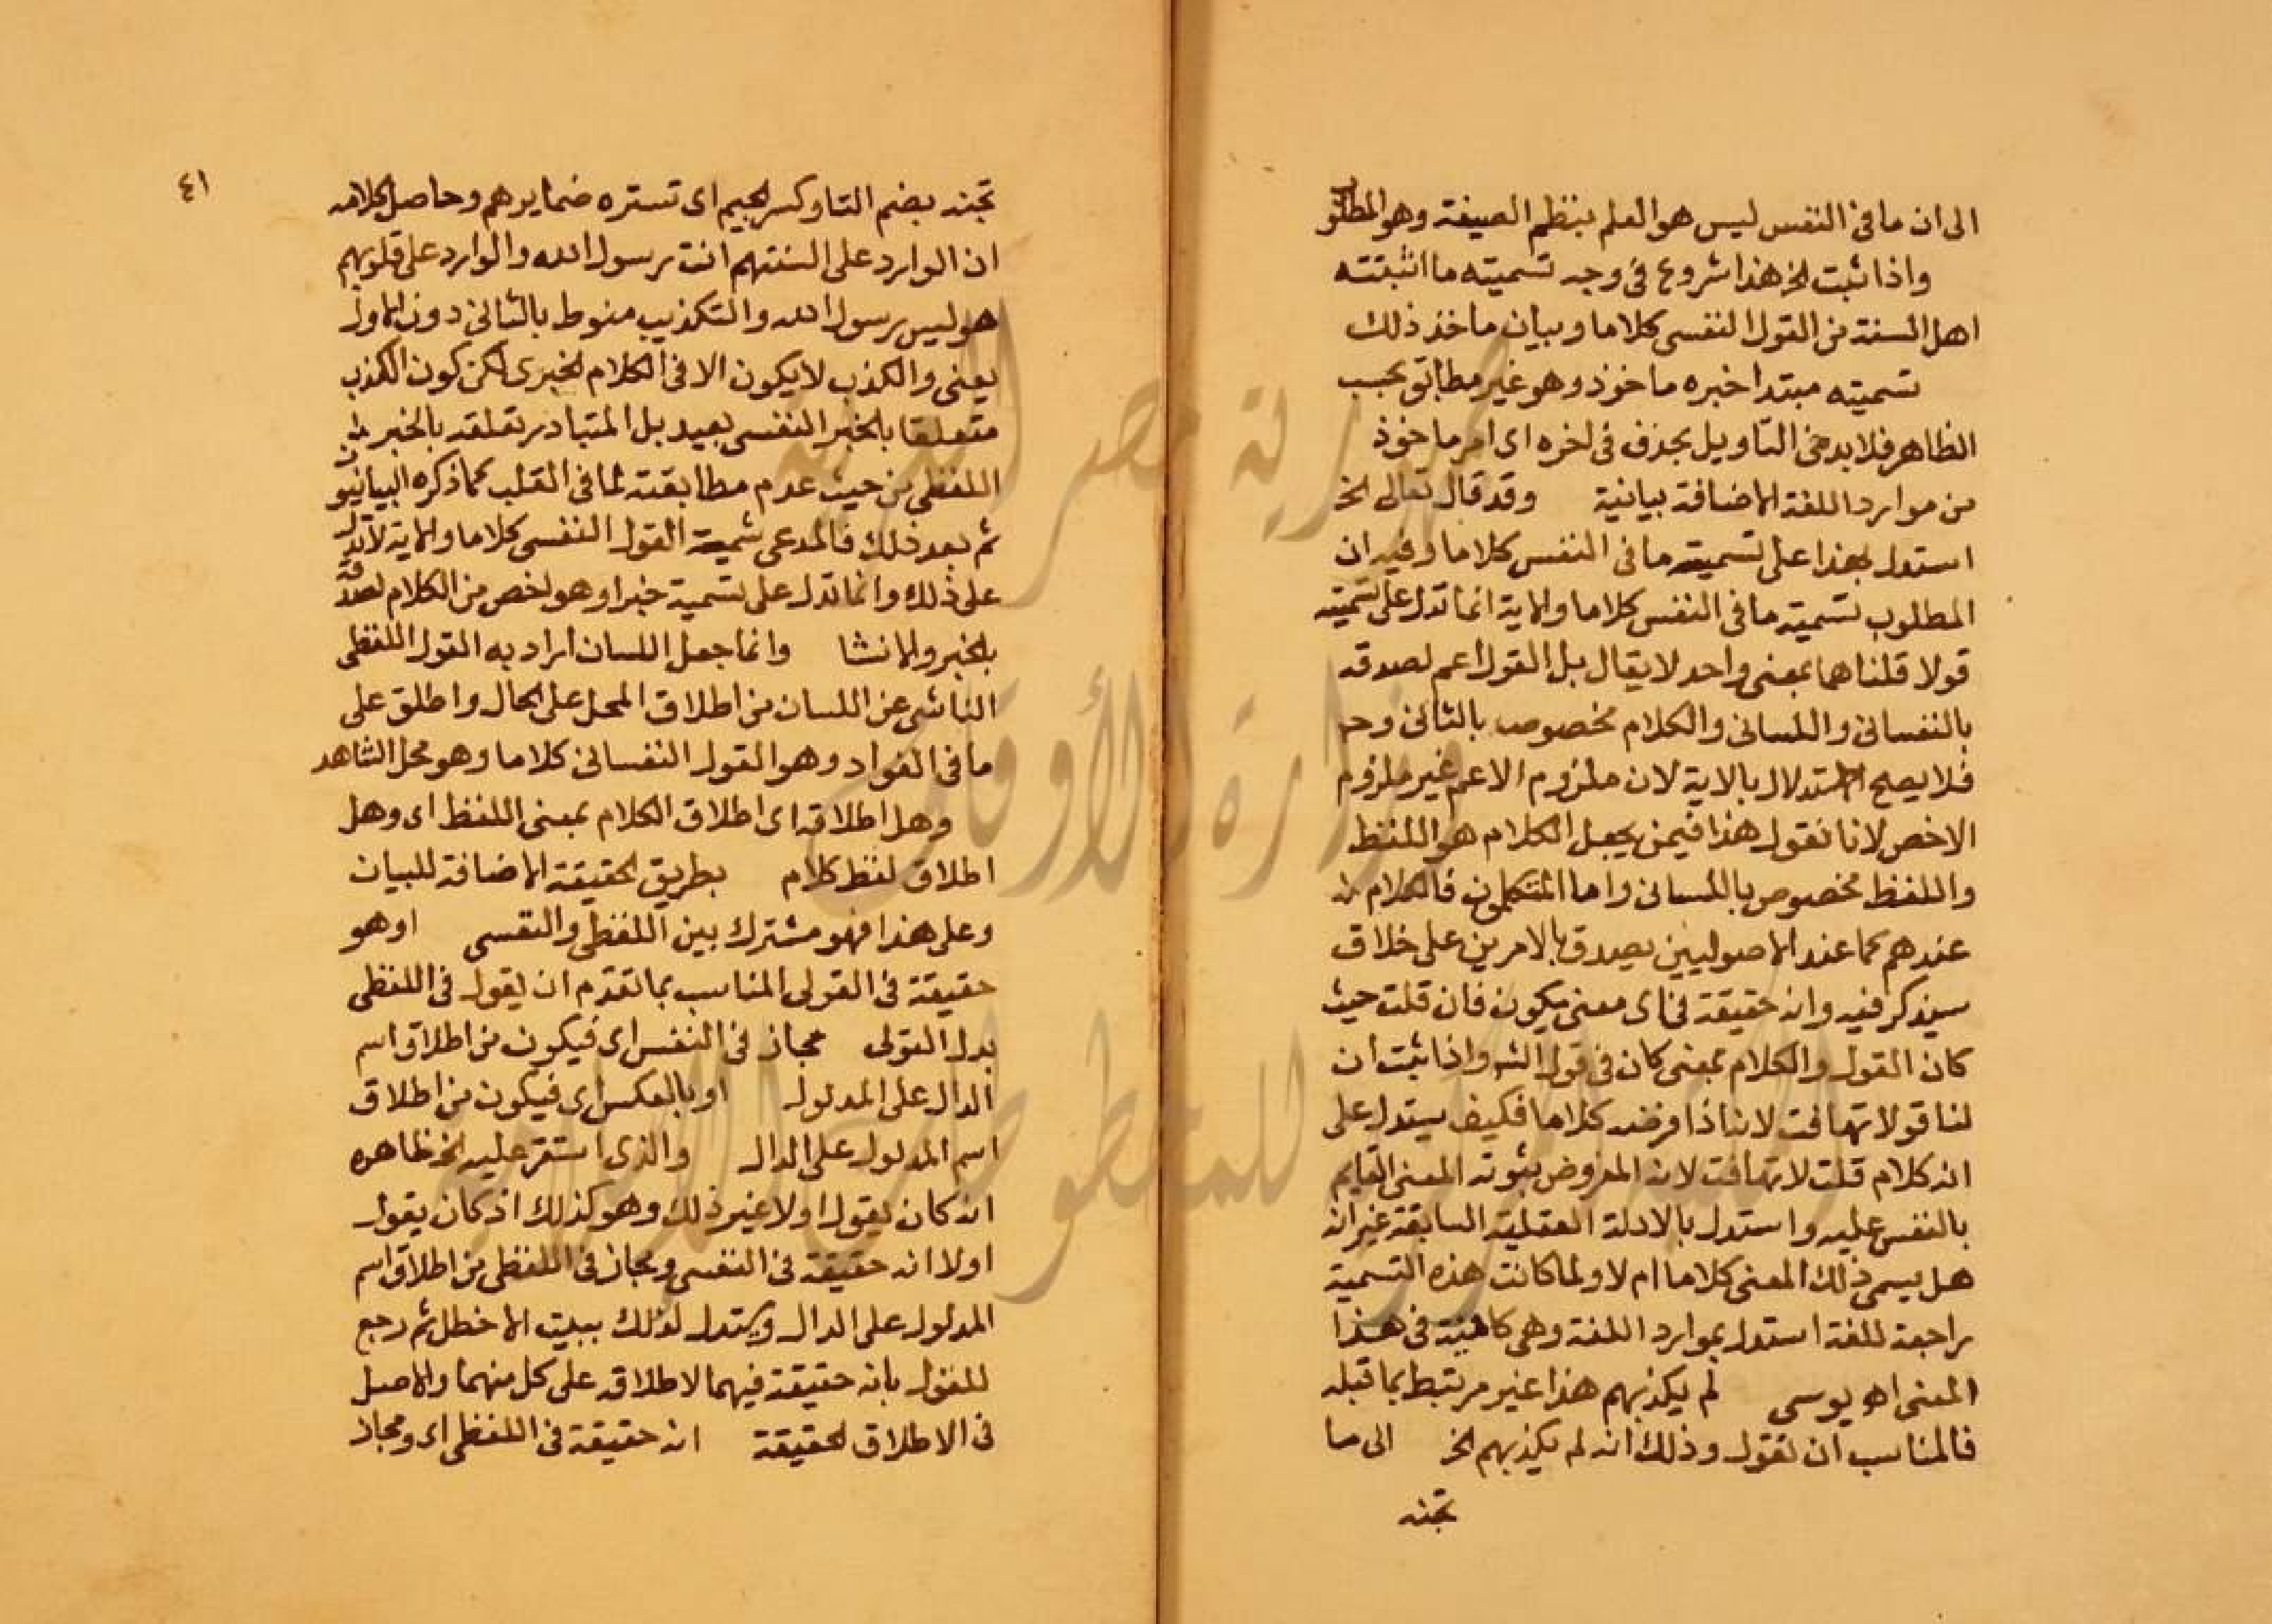 الى ان ما فى النفس ليس هو العلم بنظم الصيغة وهو المطلوب
واذا ثبت الخ هذا شروع فى وجه تسميته ما اثبتته
اهل السنة من القول النفسى كلاما وبيان ماخذ ذلك
تسميته مبتدا خبره ماخوذ وهو غير مطابق بحسب
الظاهر فلا بد من التاويل بحذف فى اخره اى امر ماخوذ
من موارد اللغة الاضافة بيانية وقد قال تعالى الخ
استدل بهذا على تسميته ما فى النفس كلاما وفيه ان
المطلوب تسميته ما فى النفس كلاما والاية انما تدل على تسميته
قولا قلنا هما بمعنى واحد لا يقال بل القول اعم لصدقه
بالنفسانى واللسانى والكلام مخصوص بالثانى وح
فلا يصح الاستدلال بالاية لان ملزوم الاعم غير ملزوم
الاخص لانا نقول هذا فيمن يجعل الكلام هو اللفظ
واللفظ مخصوص باللسانى واما المتكلمون فالكلام
عندهم كما عند الاصوليين يصدق بالامرين على خلاق
سيذكر فيه وانه حقيقة فى اى معنى يكون فان قلت حيث
كان القول والكلام بمعنى كان فى قول الشر واذا ثبت ان
لنا قولا تهافت لاننا ذا فرضه كلاما فكيف يستدل على
انه كلام قلت لا تهافت لانه المفروض بثبوته المعنى القايم
بالنفس عليه واستدل بالادلة العقلية السابقة غير انه
هل يسمى ذلك المعنى كلاما ام لا ولما كانت هذه التسمية
راجعة للغة استدل بموارد اللغة وهى كافية فى هذا
المعنى اهـ يوسى لم يكذبهم هذا غير مرتبط بما قبله
فالمناسب ان نقول وذلك انه لم يكذبهم الخ الى ما
تجنه
٤١
تجنه بضم التا وكسر الجيم اى تستره ضمايرهم وحاصل كلامه
ان الوارد على السنتهم انت رسول الله والوارد على قلوبهم
هو ليس رسول الله والتكذيب منوط بالثانى دون الاول
يعنى والكذب لا يكون الا فى الكلام الخبرى لكن كون الكذب
متعلقا بالخبر النفسى بعيد بل المتبادر تعلقه بالخبر
اللفظى من حيث عدم مطابقته لما فى القلب كما ذكره البيانيون
ثم بعد ذلك فالمدعى تسمية القول النفسى كلاما والاية لا تدل
على ذلك وانما تدل على تسمية خبرا وهو اخص من الكلام لصدقه
بالخبر والانشا وانما جعل اللسان اراد به القول اللفظى
الناشى عن اللسان من اطلاق المحل على الحال واطلق على
ما فى الفواد وهو القول النفسانى كلاما وهو محل الشاهد
وهل اطلاقه اى اطلاق الكلام بمعنى اللفظ اى وهل
اطلاق لفظ كلام بطريق الحقيقة الاضافة للبيان
وعلى هذا فهو مشترك بين اللفظى والنفسى او هو
حقيقة فى القولى المناسب بما تقدم ان يقول فى اللفظى
بدل القولى مجاز فى النفس اى فيكون من اطلاق اسم
الدال على المدلول او بالعكس اى فيكون من اطلاق
اسم المدلول على الدال والذى استقر عليه الخ ظاهره
انه كان يقول اولا غير ذلك وهو كذلك اذ كان يقول
اولا انه حقيقة فى النفسى ومجاز فى اللفظى من اطلاق اسم
المدلول على الدال ويستدل لذلك ببيت الاخطل ثم رجع
للقول بانه حقيقة فيهما لاطلاقه على كل منهما والاصل
فى الاطلاق الحقيقة انه حقيقة فى اللفظى اى ومجاز